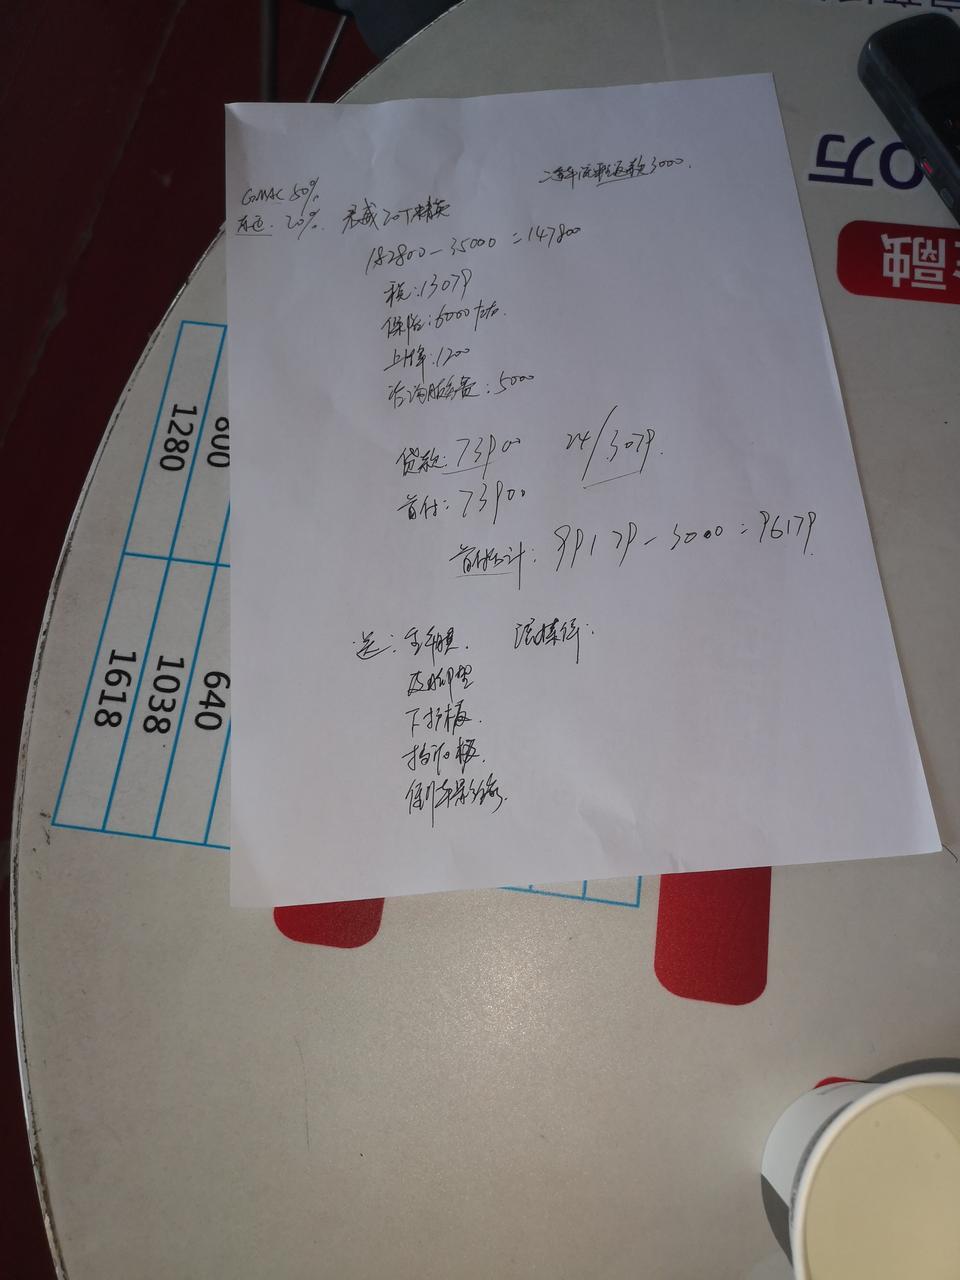 二手车流程返款3000.
GMAC 50%
首选. 20%. 君威20T精英
182800-35000=147800
税:13079
保险:6000左右.
上牌:1200
咨询服务费:5000
贷款:73900 24/3079.
首付:73900
首付合计:99179-3000=96179
送:全车膜.
皮脚垫
下护板.
挡泥板.
倒车影像.
0万
融
600
1280
640
1038
1618